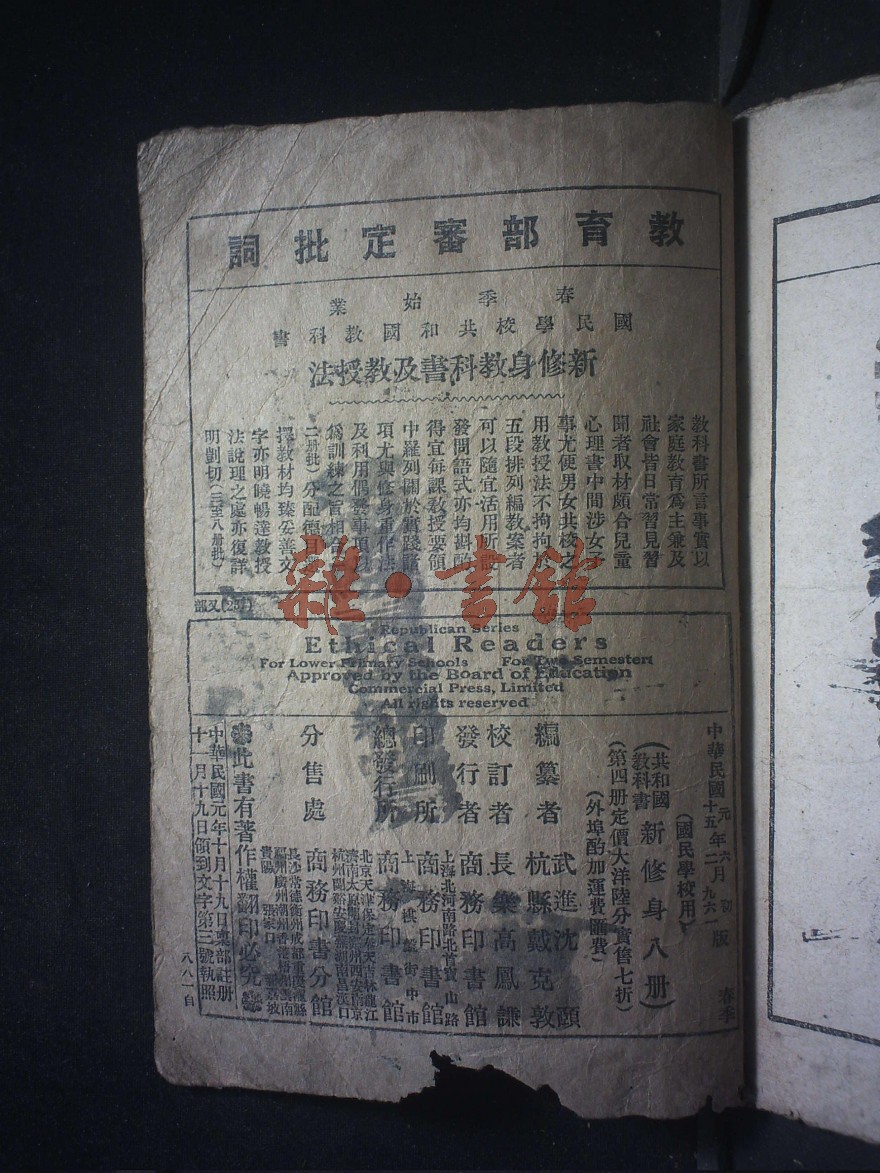 教育部審定批詞
春季始業
國民學校共和國教科書
新修身教科書及教授法
教科書所言事實以
家庭教育爲主兼及
社會皆日常習見習
聞者取材頗合兒童
心理書中間涉女子
事尤便男女共校之
用教授法不拘拘於
五段排列編教案者
可以隨宜活用所設
發問語式亦均斟酌
得宜每課教授要領
中羅列關於實踐諸
項尤與修身重作法
及利用偶發事項以
爲訓練之旨相合
二册批)分配德目選
擇教材均臻妥善文
字亦明曉暢達教授
法說理之處亦復詳
明剴切(三至八册批)
雜·書館
Republican Series
Ethical Readers
For Lower Primary Schools For Two Semesters
Approved by the Board of Education
Commercial Press, Limited
All rights reserved
中華民國元年六月初版
中華民國十五年二月九六一版
春季
(國民學校用)
(共和國教科書 新修身八册)
(第四册定價大洋陸分實售七折)
(外埠酌加運費匯費)
編纂者 武進沈頤
杭縣戴克敦
校訂者 長樂高鳳謙
發行者 商務印書館
印刷所 上海北河南路北首寶山路
商務印書館
總發行所 上海棋盤街中市
商務印書館
分售處 北京天津保定奉天吉林龍江
濟南太原開封 西安南京
杭州 安慶蕪湖南昌漢口
商務印書分館
長沙常德衡州成都重慶瀘縣
福州廣州潮州香港梧州雲南
貴陽 張家口
此書有著作權翻印必究
中華民國元年十月十九日稟部註册
十一月十九日領到文字第三號執照
八八一自